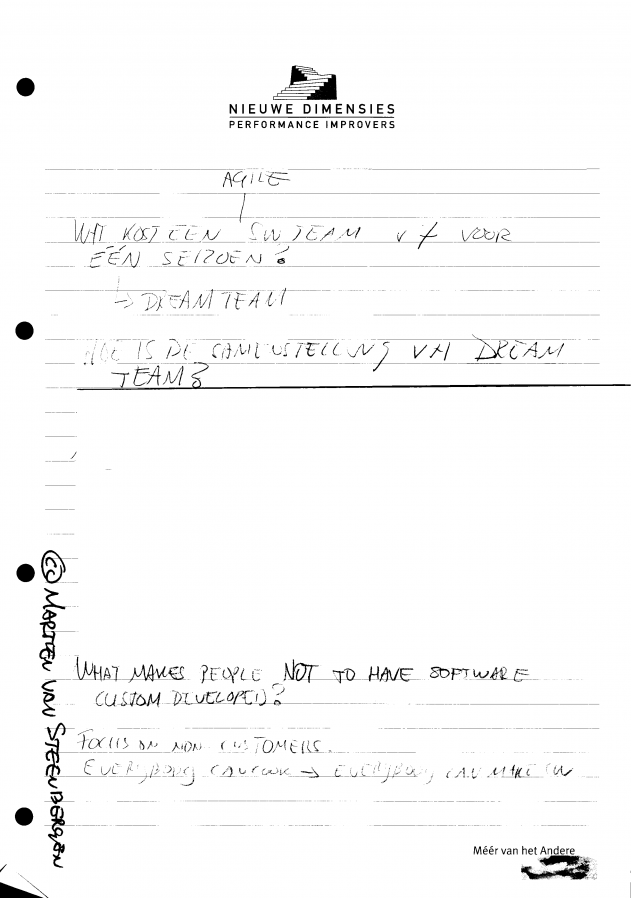 NIEUWE DIMENSIES
PERFORMANCE IMPROVERS
AGILE
WAT KOST EEN SW TEAM v f VOOR
ÉÉN SEIZOEN?
↳ DREAM TEAM
HOE IS DE SAMENSTELLING VH DREAM
TEAM?
WHAT MAKES PEOPLE NOT TO HAVE SOFTWARE
CUSTOM DEVELOPED?
FOCUS ON NON CUSTOMERS.
EVERYBODY CAN COOK → EVERYBODY CAN MAKE SW
(cc) MARTIEN VAN STEENBERGEN
Méér van het Andere